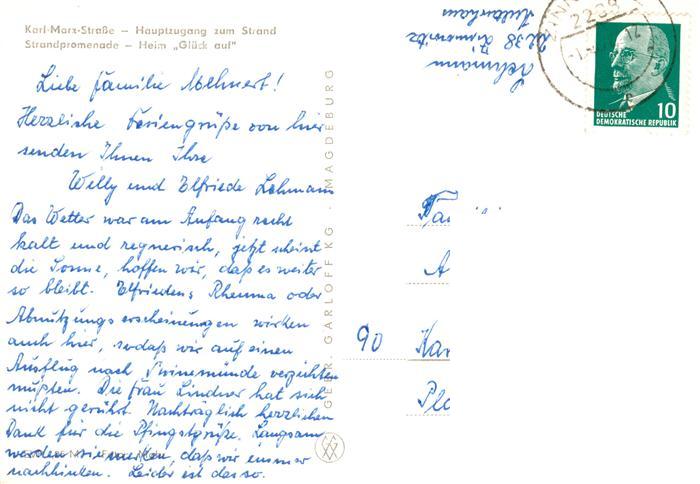 Karl-Marx-Straße – Hauptzugang zum Strand
Strandpromenade – Heim „Glück auf"
Liebe Familie Mehnert!
Herzliche Feriengrüße von hier
senden Ihnen Ihre
Willy und Elfriede Lehmann
Das Wetter war am Anfang recht
kalt und regnerisch, jetzt scheint
die Sonne, hoffen wir, daß es weiter
so bleibt. Elfriedens Rheuma oder
Abnutzungserscheinungen wirken
auch hier, sodaß wir auf einen
Ausflug nach Swinemünde verzichten
mußten. Die Frau Lindner hat sich
nicht gerührt. Nachträglich herzlichen
Dank für die Pfingstgrüße. Langsam
werden sie merken, daß wir immer
nachhinken. Leider ist das so.
GEBR. GARLOFF KG · MAGDEBURG
Lehmann
2238 Zinnowitz
2238
10
DEUTSCHE
DEMOKRATISCHE REPUBLIK
Fa
A
90 Kar
Ple